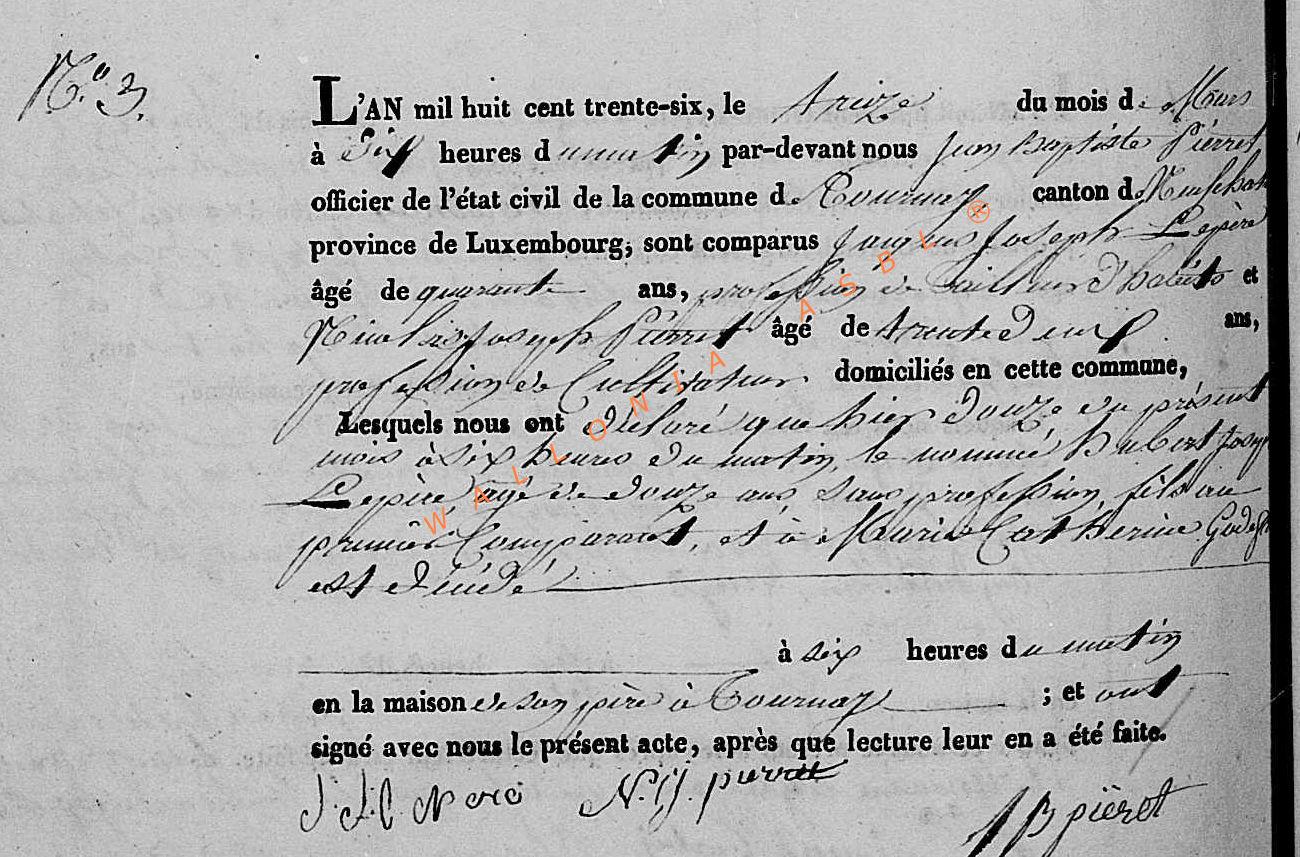 N.° 3.
L'AN mil huit cent trente-six, le treize du mois de Mars
à Dix heures du matin par-devant nous Jean Baptiste Piérret
officier de l'état civil de la commune de Tournay canton de Neufchat
province de Luxembourg, sont comparus Jacques Joseph Lepère
âgé de quarante ans, profession de Tailleur d'habits et
Nicolas Joseph Piérret âgé de trente Deux ans,
profession de Cultivateur domiciliés en cette commune,
Lesquels nous ont déclaré que hier Douze du présent
mois à six heures du matin, le nommé Hubert Josep
Lepère agé de douze ans sans profession, fils au
premier Comparant, et à Marie Catherine
est décédé
à six heures du matin
en la maison de son père à Tournay ; et ont
signé avec nous le présent acte, après que lecture leur en a été faite.
N. J. pierret
J B piëret
WALLONIA ASBL ®